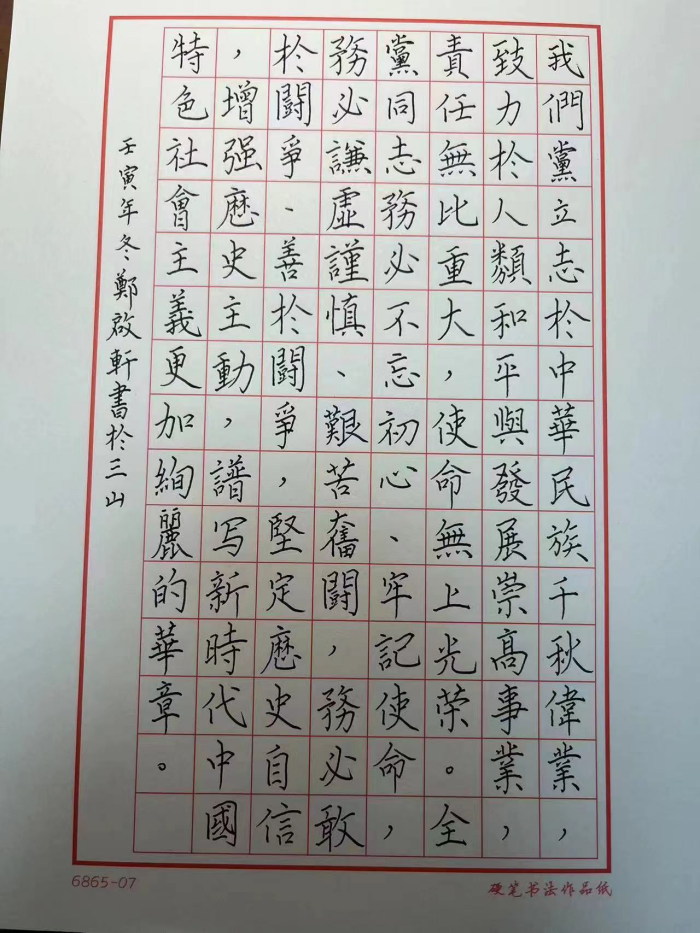 我們黨立志於中華民族千秋偉業，
致力於人類和平與發展崇高事業，
責任無比重大，使命無上光荣。全
黨同志務必不忘初心、牢記使命，
務必謙虛謹慎、艱苦奮鬪，務必敢
於鬪爭、善於鬪爭，堅定厯史自信
，增强厯史主動，譜写新時代中國
特色社會主義更加絢麗的華章。
壬寅年冬鄭啟軒書於三山
6865-07
硬笔书法作品纸